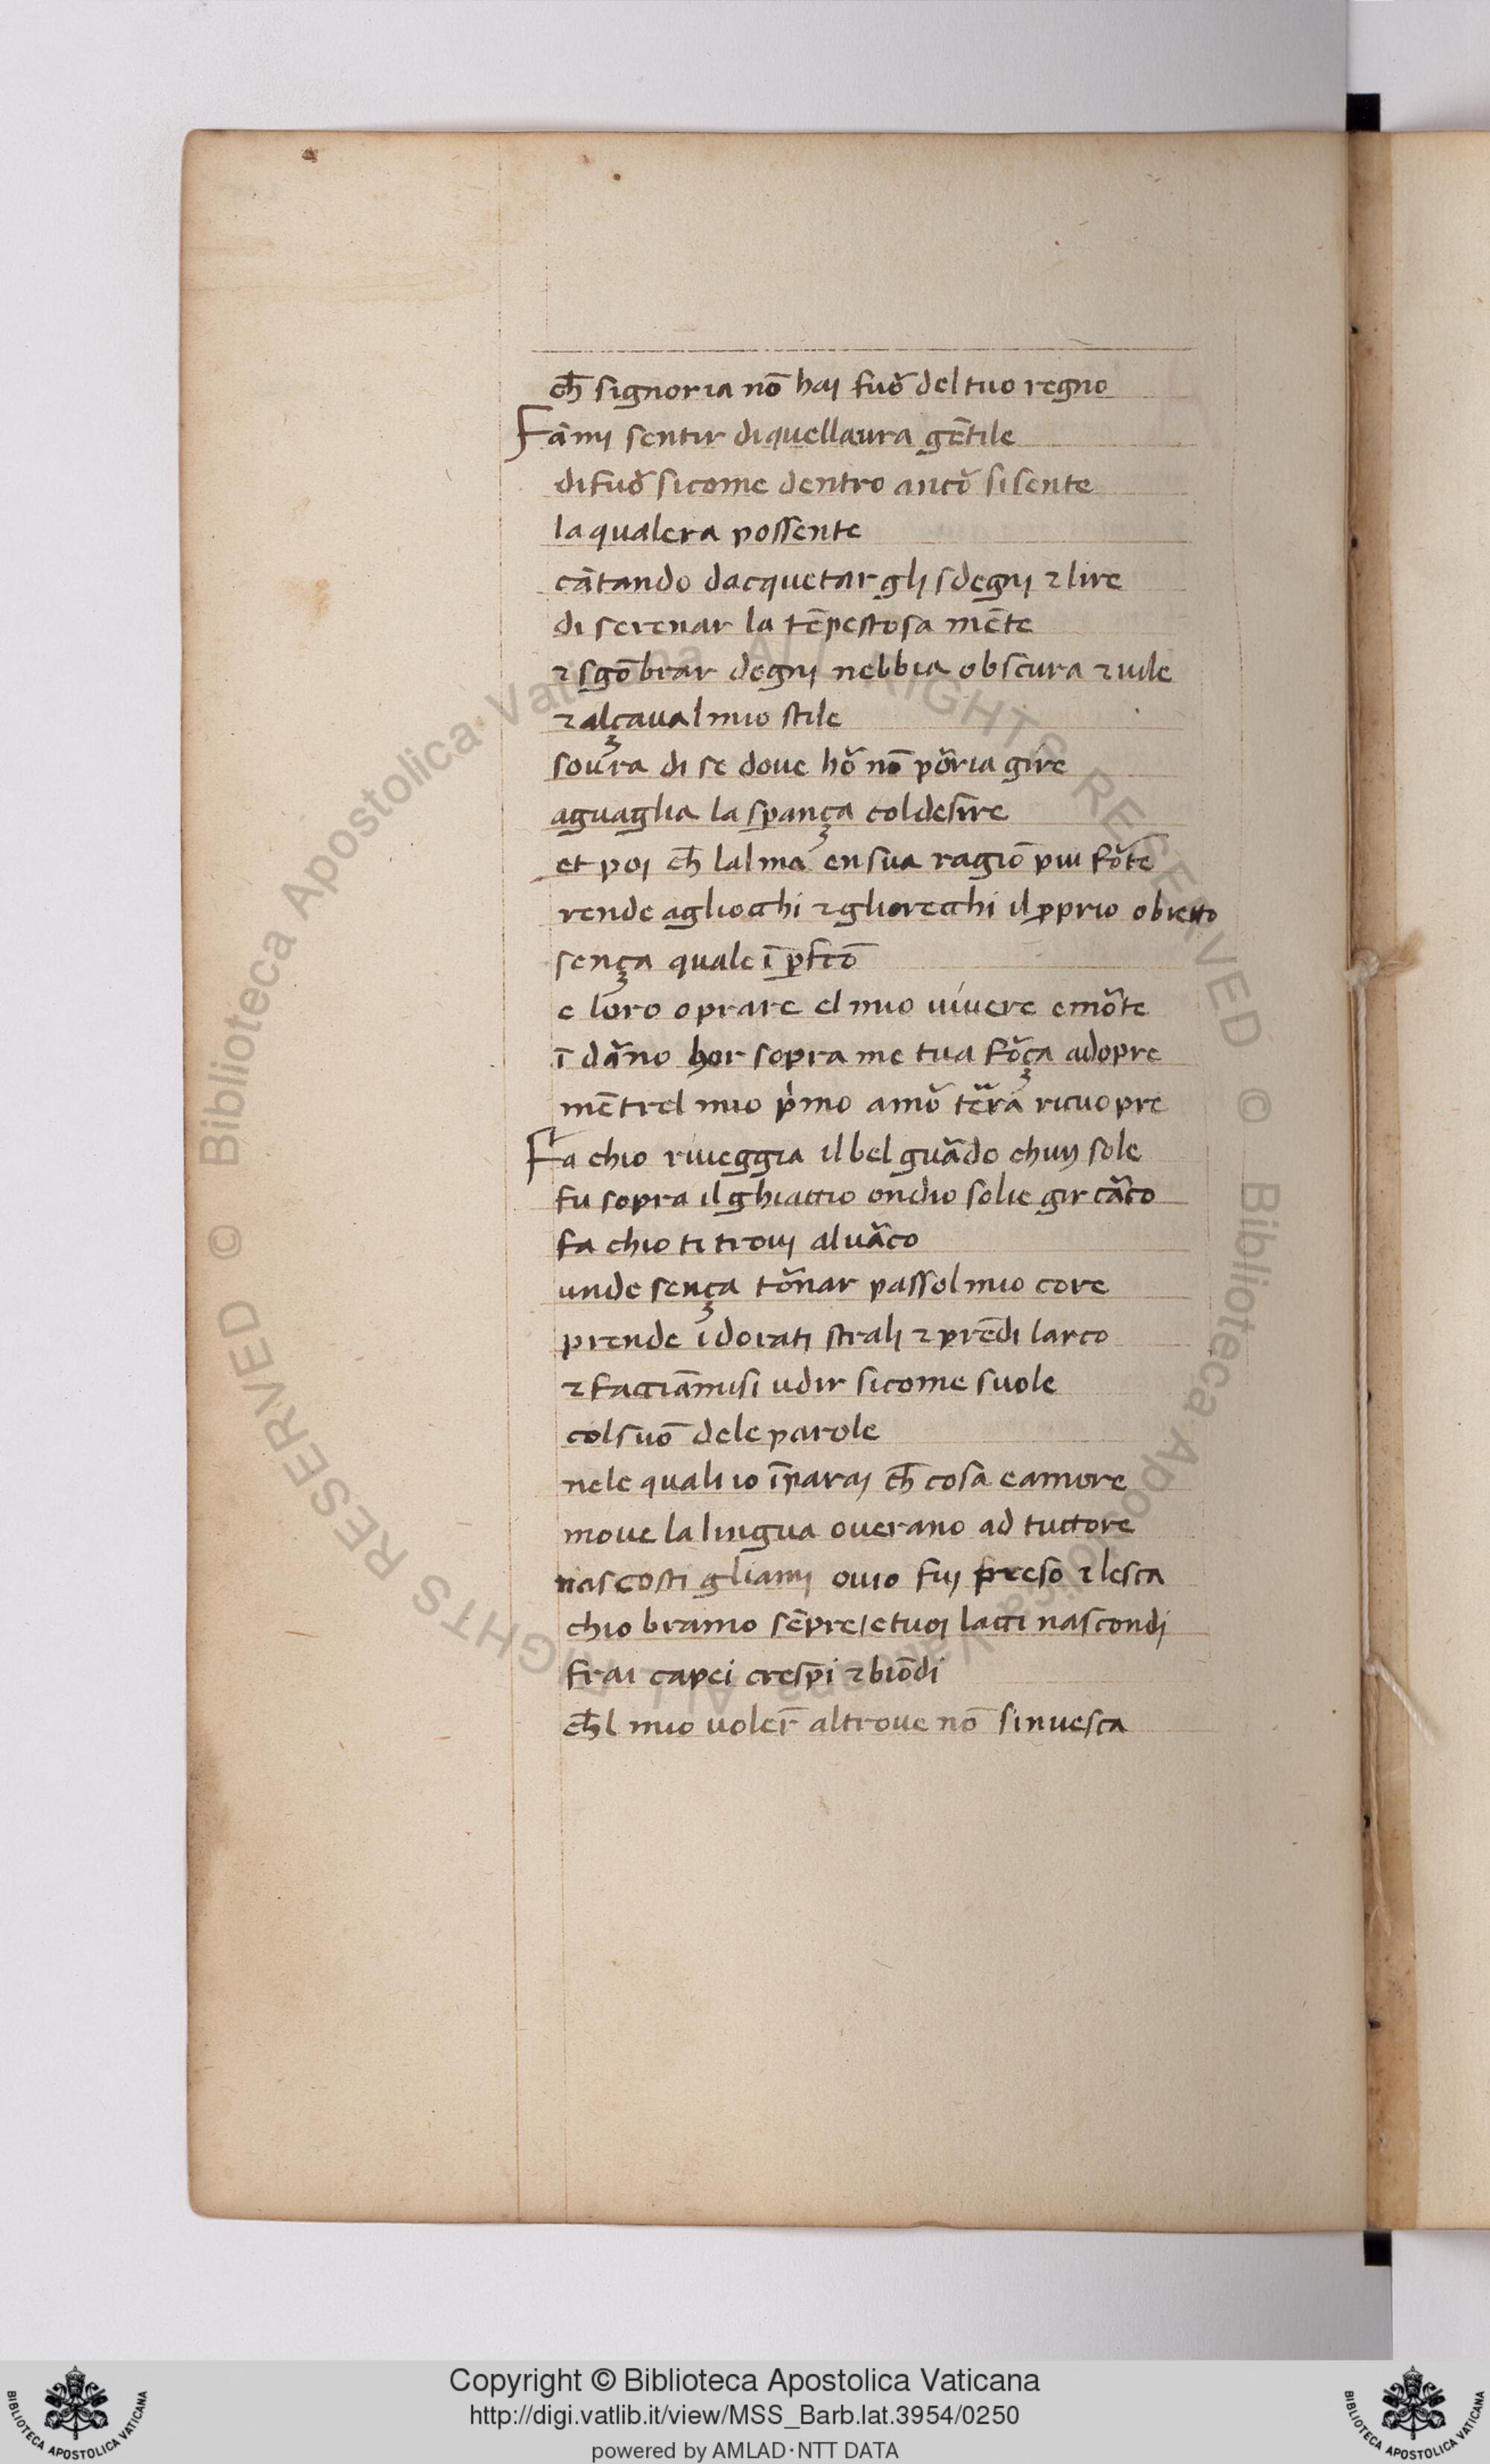 ch̄ signoria nō haj fuŏ del tuo regno
Fāmj sentir diquellaura gētile
difuŏ sicome dentro ancŏ sisente
la qualera possente
cātando dacquetar glj sdegnj ⁊ lire
di serenar la tēpestosa mēte
⁊ sgōbrar degnj nebbia obscura ⁊ uile
⁊ alçaual mio stile
soura di se doue hŏ nō pŏria gire
aguaglia la sp̄ança coldesire
et poj ch̄ lalma en sua ragiō piu fŏte
rende agliocchi ⁊ gliorecchi il ꝓprio obietto
sença quale ī p̄fcō
e loro oprare el mio uiuere e mŏte
ī dāno hor sopra me tua fŏça adopre
mētrel mio p̍mo amŏ tĕra ricuopre
Fa chio riueggia il bel guădo chuŋ sole
fu sopra il ghiaccio ondio solie gir căco
fa chio ti trouj aluăco
unde sença tŏnar passol mio core
prende i dorati stralj ⁊ prēdi larco
⁊ facciāmisi udir sicome suole
col suō dele parole
nele quali io īparaj ch̄ cosa e amore
moue la lingua ouerano ad tuttore
nascosti gliamj ouio fuj preso ⁊ lesca
chio bramo sēpre / e tuoj lacci nascondj
frai capei cresp̄i ⁊ biōdi
ch̄l mio uoler̄ altroue nō sinuesca
© Biblioteca Apostolica Vaticana ALL RIGHTS RESERVED
© Biblioteca Apostolica Vaticana ALL RIGHTS RESERVED
Copyright © Biblioteca Apostolica Vaticana
http://digi.vatlib.it/view/MSS_Barb.lat.3954/0250
powered by AMLAD·NTT DATA
BIBLIOTECA APOSTOLICA VATICANA
BIBLIOTECA APOSTOLICA VATICANA